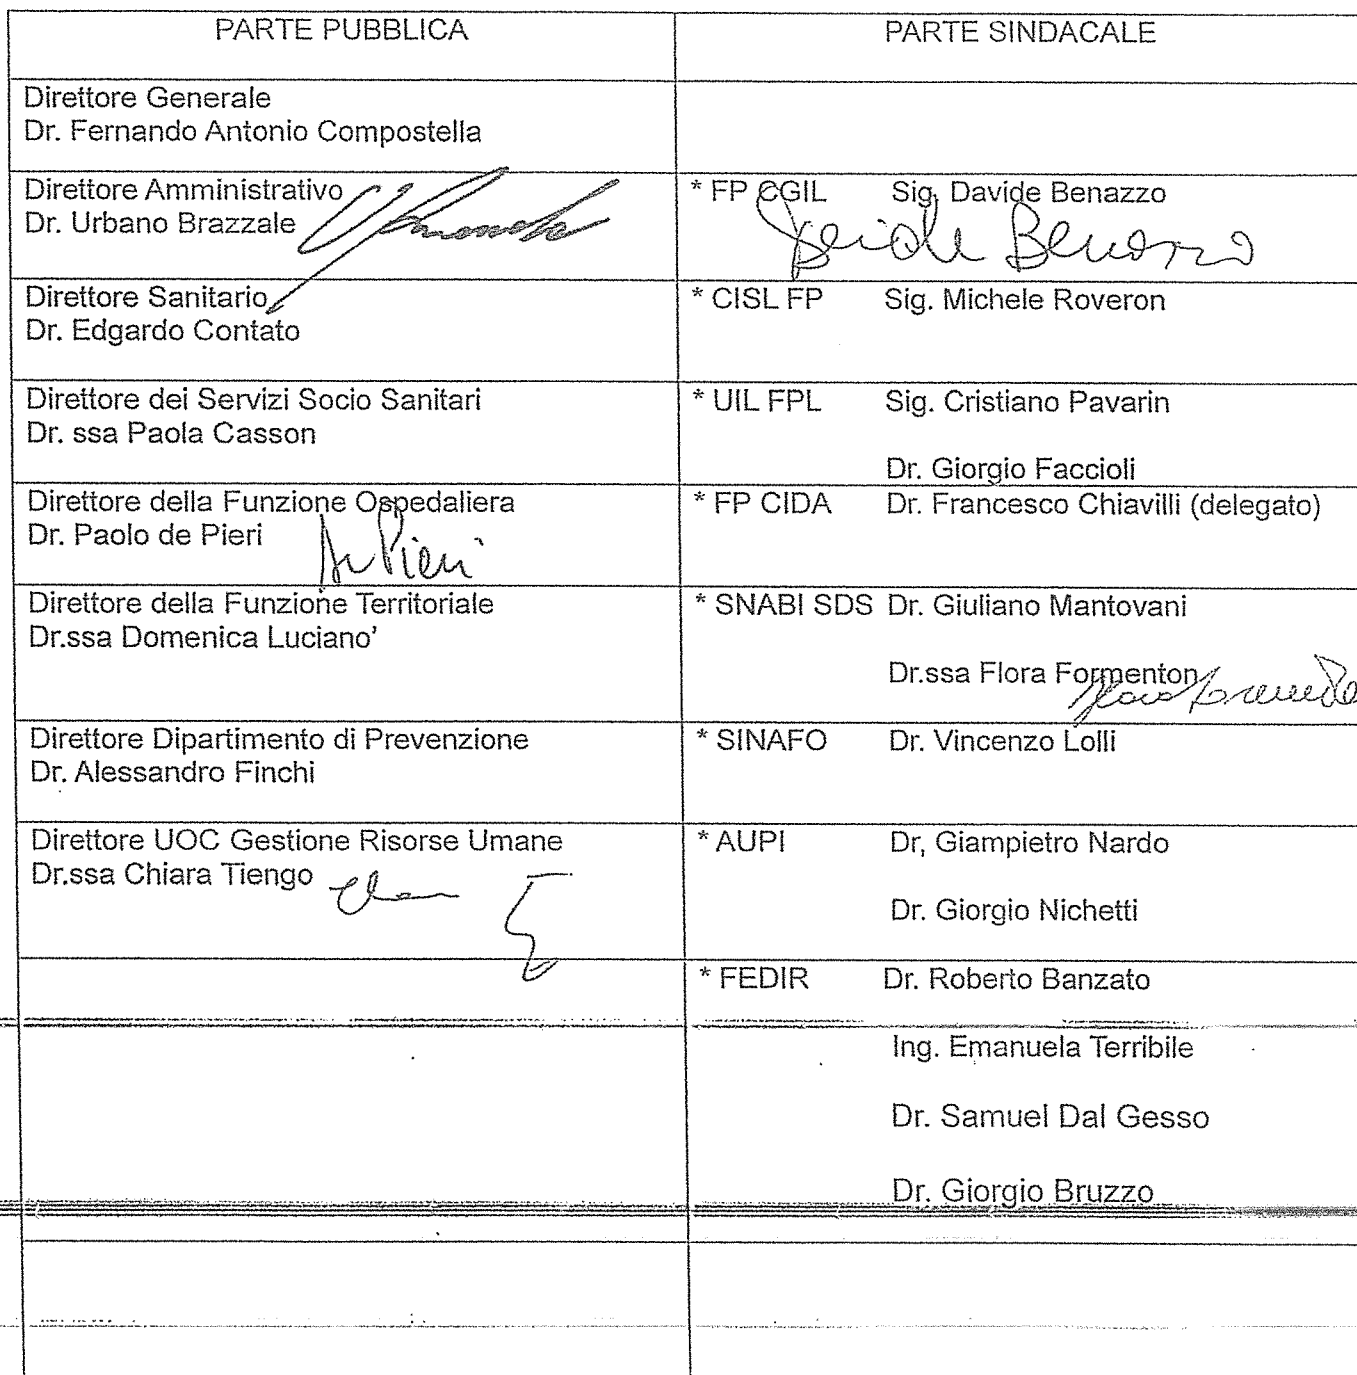 PARTE PUBBLICA
PARTE SINDACALE
Direttore Generale
Dr. Fernando Antonio Compostella
Direttore Amministrativo
Dr. Urbano Brazzale
* FP CGIL Sig. Davide Benazzo
Davide Benazzo
Direttore Sanitario
Dr. Edgardo Contato
* CISL FP Sig. Michele Roveron
Direttore dei Servizi Socio Sanitari
Dr. ssa Paola Casson
* UIL FPL Sig. Cristiano Pavarin
Dr. Giorgio Faccioli
Direttore della Funzione Ospedaliera
Dr. Paolo de Pieri
de Pieri
* FP CIDA Dr. Francesco Chiavilli (delegato)
Direttore della Funzione Territoriale
Dr.ssa Domenica Luciano'
* SNABI SDS Dr. Giuliano Mantovani
Dr.ssa Flora Formenton
Direttore Dipartimento di Prevenzione
Dr. Alessandro Finchi
* SINAFO Dr. Vincenzo Lolli
Direttore UOC Gestione Risorse Umane
Dr.ssa Chiara Tiengo
* AUPI Dr, Giampietro Nardo
Dr. Giorgio Nichetti
* FEDIR Dr. Roberto Banzato
Ing. Emanuela Terribile
Dr. Samuel Dal Gesso
Dr. Giorgio Bruzzo